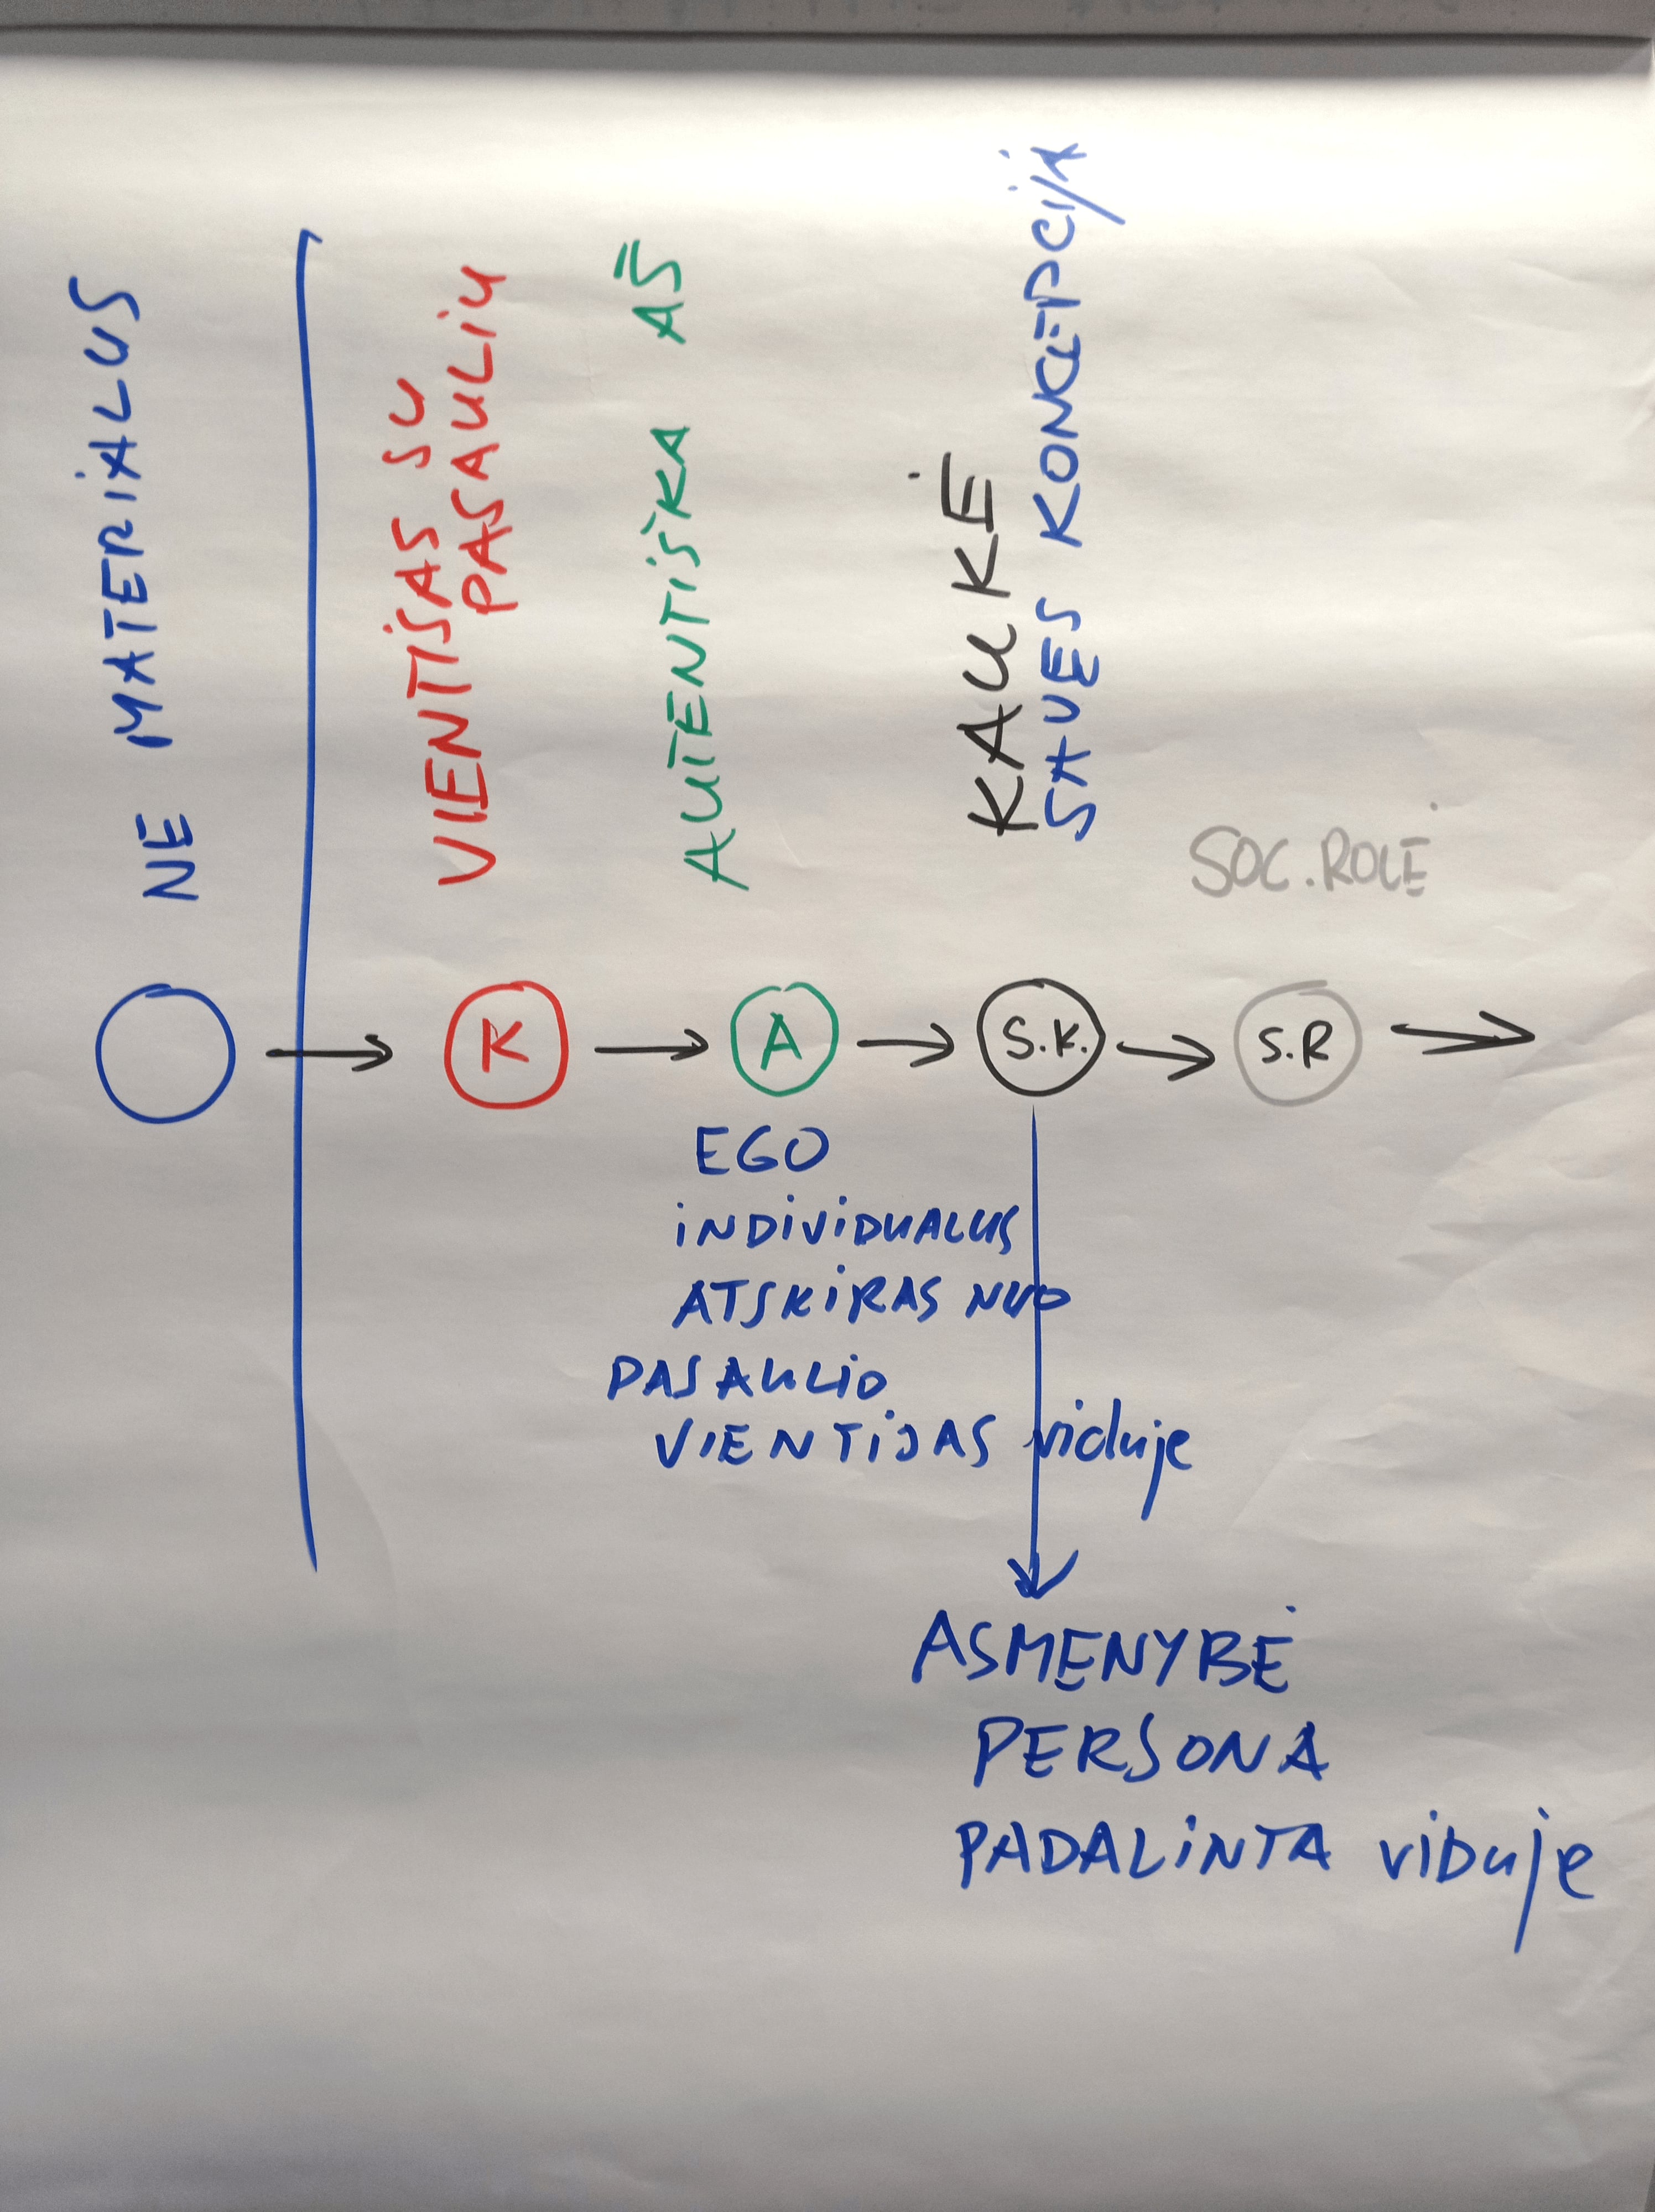 NE MATERIALUS
VIENTISAS SU
PASAULIU
AUTENTIŠKA AŠ
KAUKĖ
SAVES KONCEPCIJA
SOC. ROLĖ
K
A
S.K.
S.R
EGO
INDIVIDUALUS
ATSKIRAS NUO
PASAULIO
VIENTISAS viduje
ASMENYBĖ
PERSONA
PADALINTA viDuje